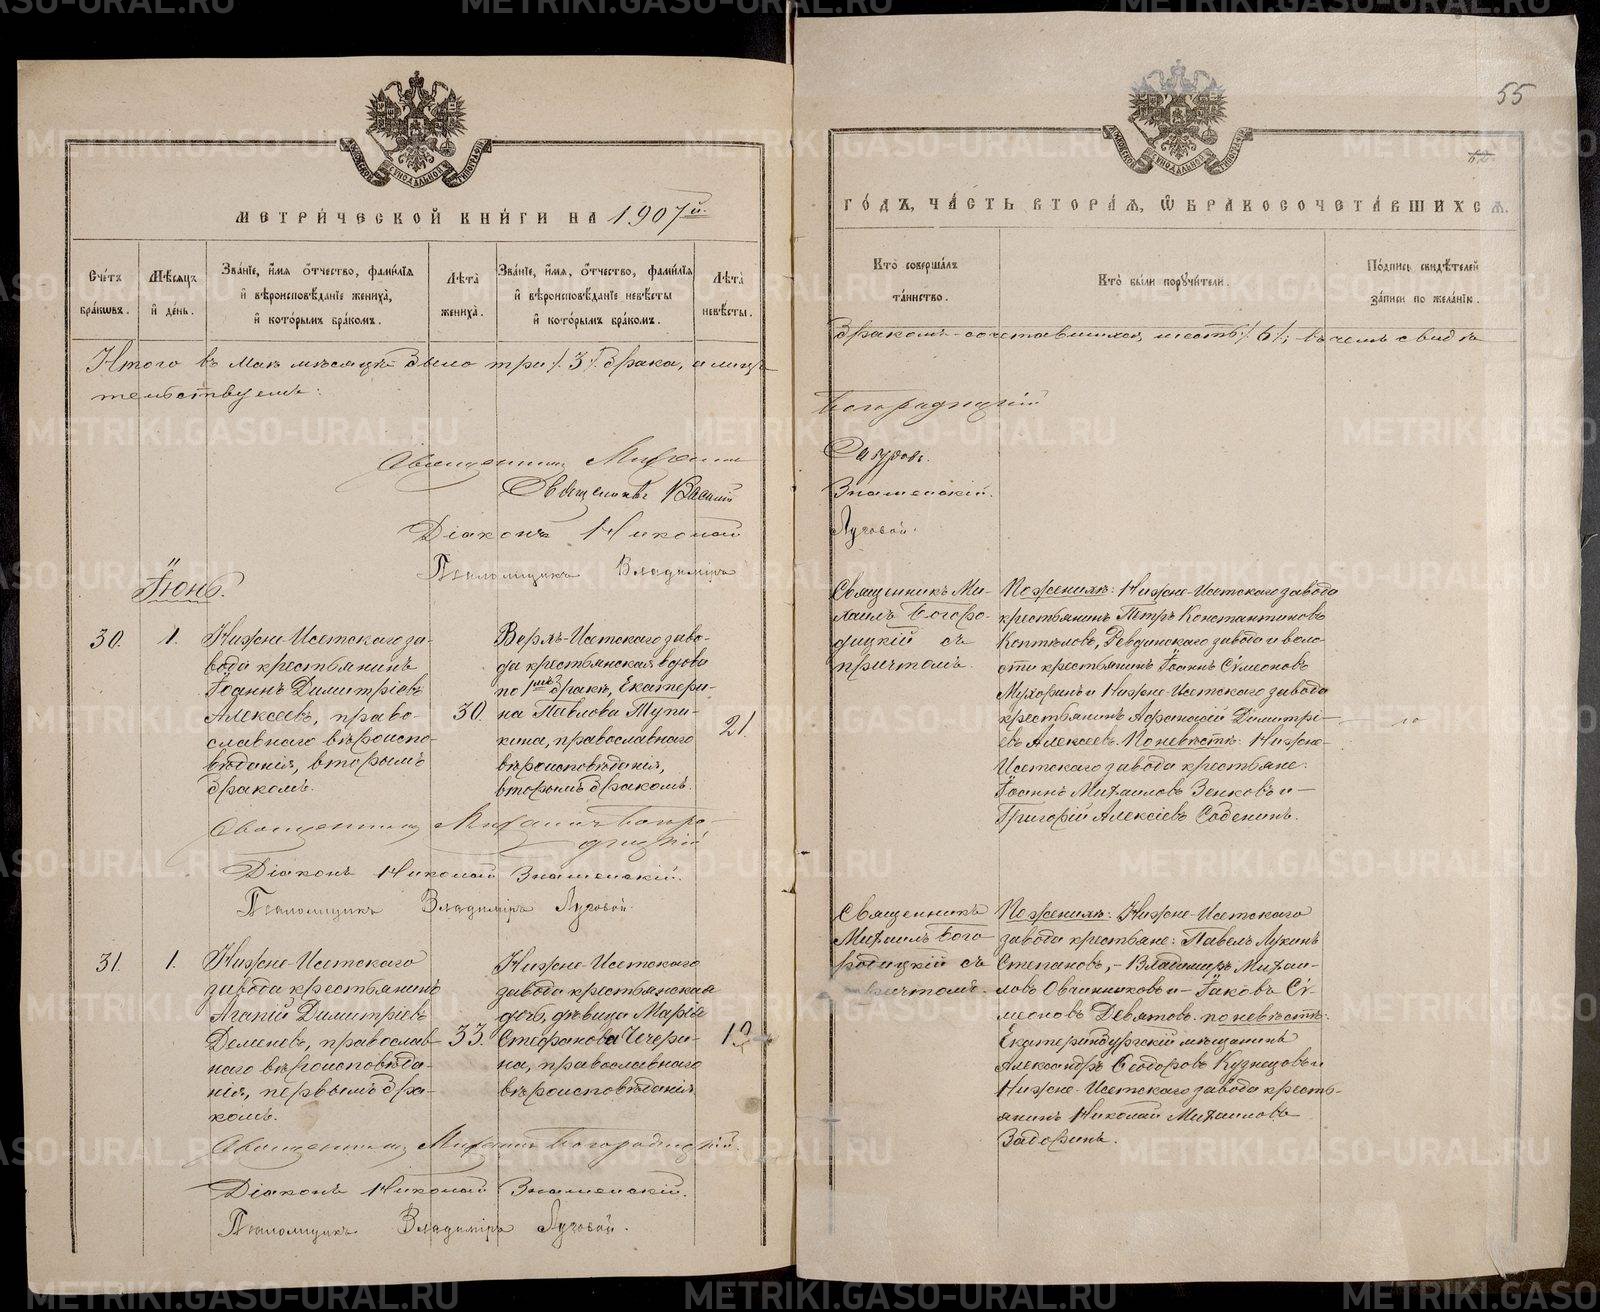 МЕТРИ́ЧЕСКОЙ КНИ́ГИ НА 1907й.
Сче́тъ бра́ковъ.
Мѣ́сяцъ и҆ де́нь.
Зва́нїе, и҆́мя, ѻ҆́тчество, фами́лїя и҆ вѣроисповѣ́данїе жениха̀, и҆ кото́рымъ бра́комъ.
Лѣ́та жениха̀.
Зва́нїе, и҆́мя, ѻ҆́тчество, фами́лїя и҆ вѣроисповѣ́данїе невѣ́сты и҆ кото́рымъ бра́комъ.
Лѣ́та невѣ́сты.
Итого въ Маѣ мѣсяцѣ было три /.3/. брака, а лицъ
тельствуемъ:
Священникъ Михаилъ
Священникъ Василій
Діаконъ Николай
Псаломщикъ Владиміръ
Іюнь.
30.
1.
Нижне-Исетскаго за-
вода крестьянинъ
Іоаннъ Димитріевъ
Алексеевъ, право-
славнаго вѣроиспо-
вѣданія, вторымъ
бракомъ.
30.
Верхъ-Исетскаго заво-
да крестьянская вдова
по 1мъ бракѣ, Екатери-
на Павлова Тупи-
кина, православнаго
вѣроисповѣданія,
вторымъ бракомъ.
21.
Священникъ Михаилъ Богоро-
дицкій
Діаконъ Николай Знаменскій.
Псаломщикъ Владиміръ Луговой.
31.
1.
Нижне-Исетскаго
завода крестьянинъ
Агапій Димитріевъ
Деменевъ, православ-
наго вѣроисповѣда-
нія, первымъ бра-
комъ.
33.
Нижне-Исетскаго
завода крестьянская
дочь, дѣвица Марія
Стефанова Чечери-
на, православнаго
вѣроисповѣданія
Священникъ Михаилъ Богородицкій.
Діаконъ Николай Знаменскій.
Псаломщикъ Владиміръ Луговой.
55
ГО́ДЪ, ЧА́СТЬ ВТОРА́Я, Ѡ҆ БРАКОСОЧЕТА́ВШИХСЯ.
Кто̀ соверша́лъ та́инство.
Кто̀ бы́ли поручи́тели.
По́дпись свидѣ́телей за́писи по жела́нїю.
бракомъ-сочетавшихся, шесть /.6/., въ чемъ свидѣ-
Богородицкій
Знаменскій.
Луговой.
Священникъ Ми-
хаилъ Богоро-
дицкій съ
причтомъ.
По женихѣ: Нижне-Исетскаго завода
крестьянинъ Петръ Константиновъ
Коптѣловъ, Ревдинскаго завода и воло-
сти крестьянинъ Іоаннъ Сѵмеоновъ
Мухоринъ и Нижне-Исетскаго завода
крестьянинъ Афанасій Димитрі-
евъ Алексеевъ. По невѣстѣ: Нижне-
Исетскаго завода крестьяне:
Іоаннъ Михаиловъ Зенковъ и -
Григорій Алексіевъ Соденинъ.
Священникъ
Михаилъ Бого
родицкій съ
причтомъ.
По женихѣ: Нижне-Исетскаго
завода крестьяне: Павелъ Лукинъ
Степановъ, - Владимиръ Михаи-
ловъ Овчинниковъ и - Іаковъ Сѵ-
меоновъ Девятовъ. по невѣстѣ:
Екатеринбургскій мѣщанинъ
Александръ Ѳеодоровъ Кузнецовъ и
Нижне-Исетскаго завода кресть-
янинъ Николай Михаиловъ
Задоринъ.
METRIKI.GASO-URAL.RU